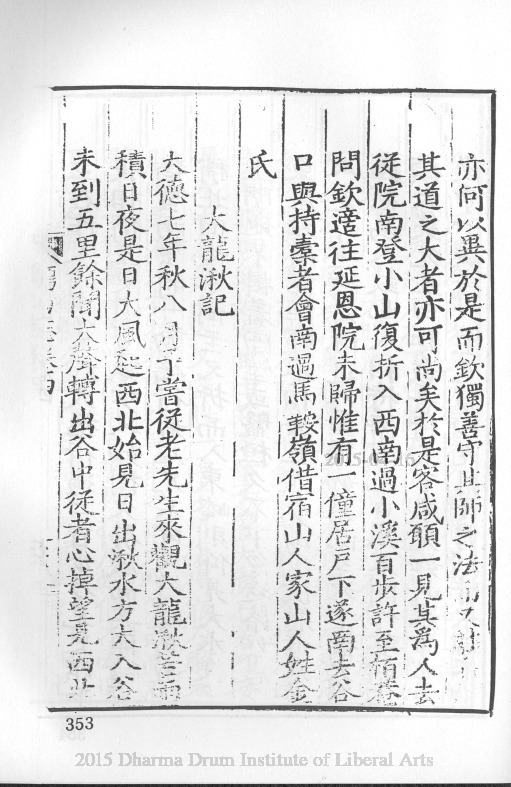 亦何以異於是而欽獨善守其師之法
其道之大者亦可尚矣於是客咸願一見其為人去
從院南登小山復折入西南過小溪百步許至
問欽適往延恩院未歸惟有一僮居戶下遂南去谷
口與持橐者會南過馬鞍嶺借宿山人家山人姓金
氏
大龍湫記
大德七年秋八月予嘗從老先生來觀大龍湫苦雨
積日夜是日大風起西北始見日出湫水方大入谷
未到五里餘聞大聲轉出谷中從者心掉望見西北
353
2015 Dharma Drum Institute of Liberal Arts